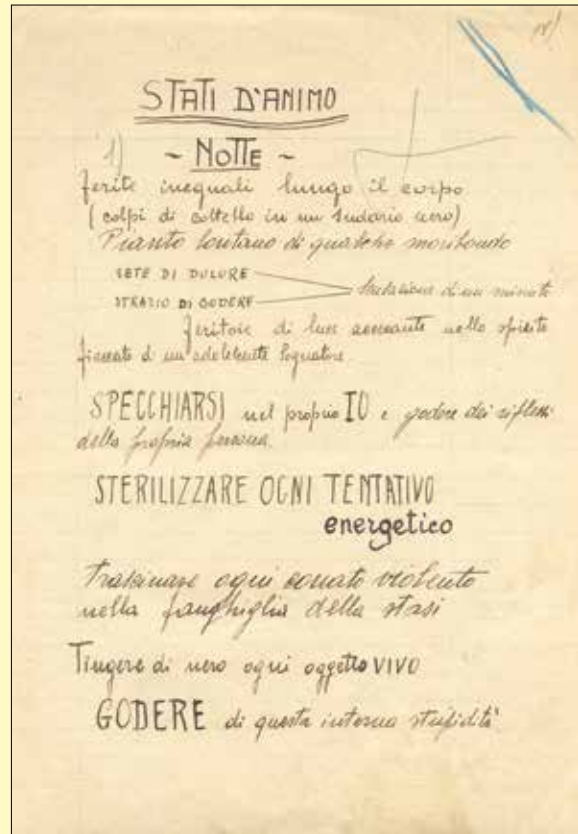 18)
STATI D'ANIMO
1) ~ NOTTE ~
ferite ineguali lungo il corpo
(colpi di coltello in un sudario nero)
Pianto lontano di qualche moribondo
SETE DI DOLORE
STRAZIO DI GODERE
di un minuto
feritore di luce accecante nello spirito
fiaccato d'un adolescente sognatore.
SPECCHIARSI nel proprio IO e godere dei riflessi
della propria persona.
STERILIZZARE OGNI TENTATIVO
energetico
Trascinare ogni conato violento
nella fanghiglia della stasi
Tingere di nero ogni oggetto VIVO
GODERE di questa interna stupidità